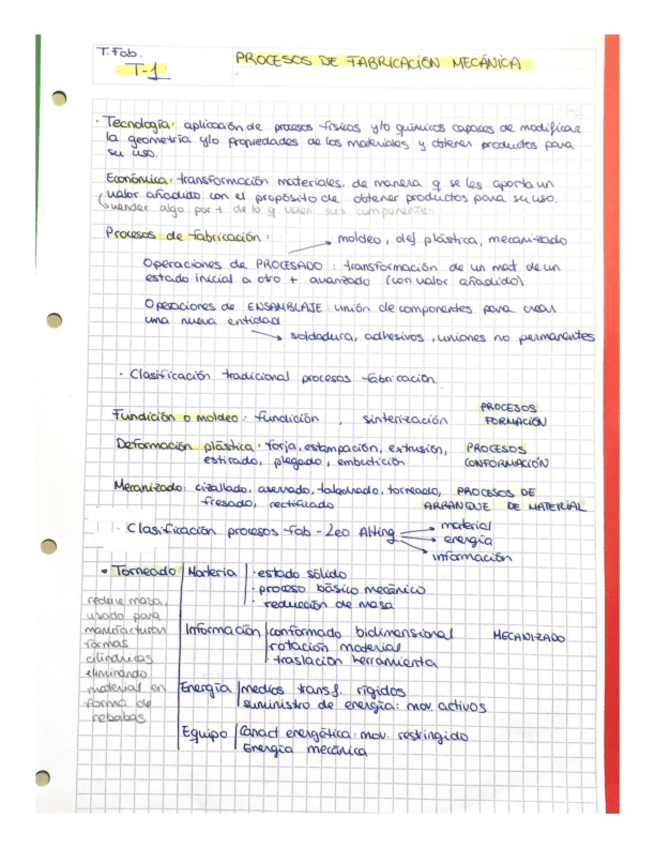 T. Fab.
T-1
PROCESOS DE FABRICACIÓN MECÁNICA
· Tecnología: aplicación de procesos físicos y/o químicos capaces de modificar
la geometría y/o propiedades de los materiales y obtener productos para
su uso.
Económica: transformación materiales, de manera q se les aporta un
valor añadido con el propósito de obtener productos para su uso.
vender algo por + de lo q valen sus componentes
Procesos de fabricación:
moldeo, def plástica, mecanizado
Operaciones de PROCESADO: transformación de un mat de un
estado inicial a otro + avanzado (con valor añadido)
Operaciones de ENSAMBLAJE: unión de componentes para crear
una nueva entidad
soldadura, adhesivos, uniones no permanentes
· Clasificación tradicional procesos fabricación
Fundición o moldeo: fundición, sinterización
PROCESOS
FORMACIÓN
Deformación plástica: forja, estampación, extrusión,
estirado, plegado, embutición
PROCESOS
CONFORMACIÓN
Mecanizado: cizallado, aserrado, taladrado, torneado,
fresado, rectificado
PROCESOS DE
ARRANQUE DE MATERIAL
· Clasificación procesos fab - Leo Alting
material
energía
información
• Torneado
reduce masa,
usado para
manufacturar
formas
cilíndricas
eliminando
material en
forma de
rebabas
Materia
· estado sólido
· proceso básico mecánico
· reducción de masa
Información
conformado bidimensional
rotación material
· traslación herramienta
MECANIZADO
Energía
medios transf. rígidos
suministro de energía: mov. activos
Equipo
Caract energética: mov. restringido
Energía mecánica